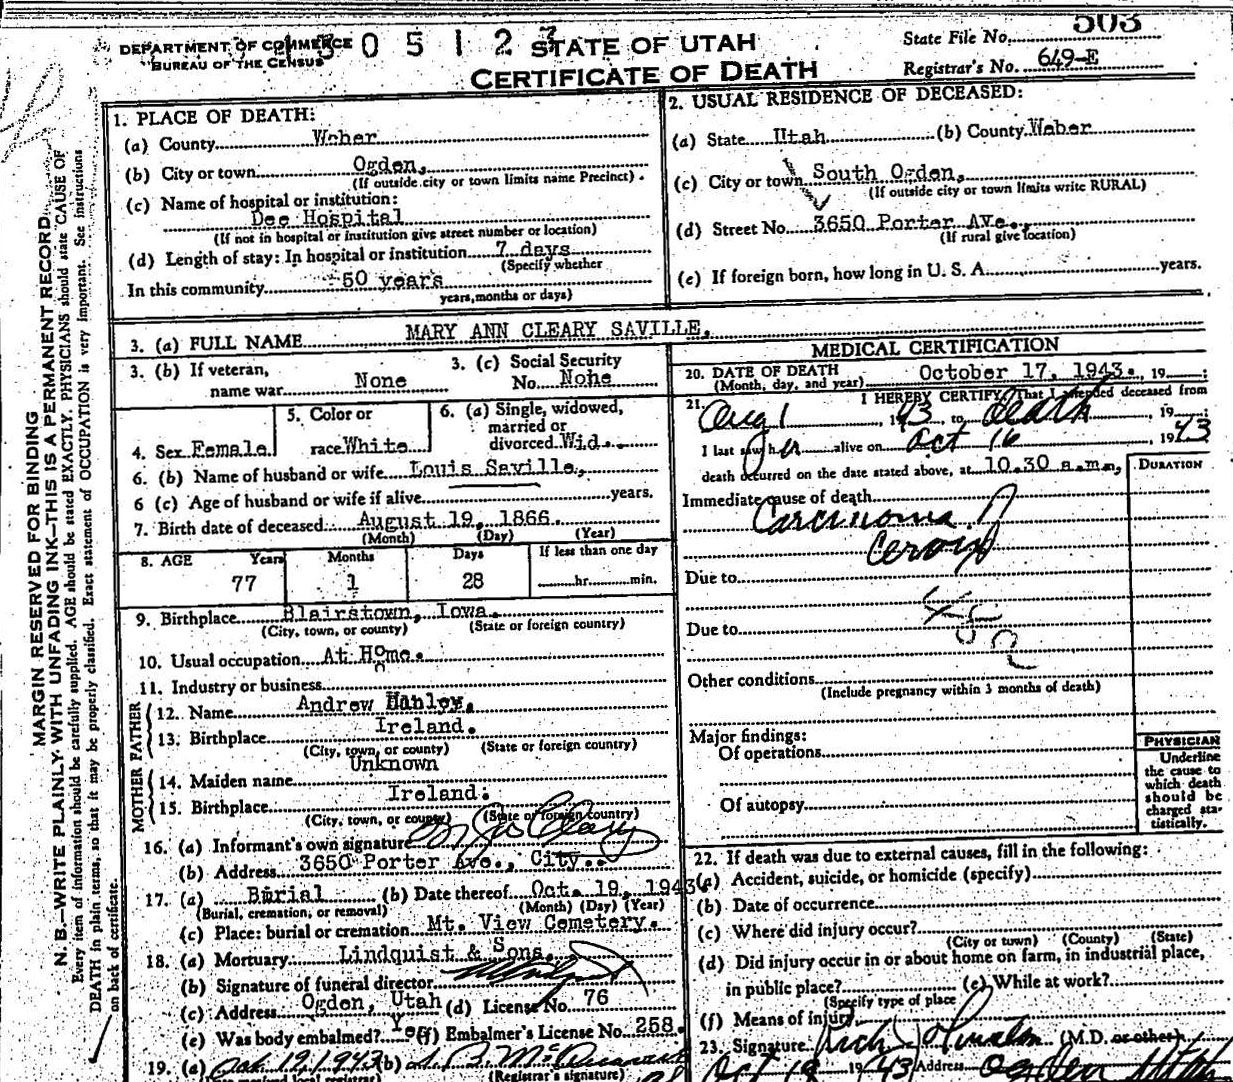 503
DEPARTMENT OF COMMERCE
BUREAU OF THE CENSUS
0 5 1 2
STATE OF UTAH
CERTIFICATE OF DEATH
State File No.
Registrar's No. 649-E
MARGIN RESERVED FOR BINDING
N. B.—WRITE PLAINLY, WITH UNFADING INK—THIS IS A PERMANENT RECORD
Every item of information should be carefully supplied. AGE should be stated EXACTLY. PHYSICIANS should state CAUSE OF
DEATH in plain terms, so that it may be properly classified. Exact statement of OCCUPATION is very important. See instructions
on back of certificate.
1. PLACE OF DEATH:
(a) County Weber
(b) City or town Ogden,
(If outside city or town limits name Precinct)
(c) Name of hospital or institution:
Dee Hospital
(If not in hospital or institution give street number or location)
(d) Length of stay: In hospital or institution 7 days
(Specify whether
In this community 50 years
years, months or days)
2. USUAL RESIDENCE OF DECEASED:
(a) State Utah (b) County Weber
(c) City or town South Ogden,
(If outside city or town limits write RURAL)
(d) Street No. 3650 Porter Ave.,
(If rural give location)
(e) If foreign born, how long in U. S. A. years.
3. (a) FULL NAME MARY ANN CLEARY SAVILLE,
3. (b) If veteran,
name war None
3. (c) Social Security
No. None
4. Sex Female
5. Color or
race White
6. (a) Single, widowed,
married or
divorced Wid.
6. (b) Name of husband or wife Louis Saville,
6 (c) Age of husband or wife if alive years.
7. Birth date of deceased August 19, 1866.
(Month) (Day) (Year)
8. AGE Years Months Days If less than one day
77 1 28 hr. min.
9. Birthplace Blairstown, Iowa.
(City, town, or county) (State or foreign country)
10. Usual occupation At Home.
11. Industry or business
FATHER
12. Name Andrew Hanley,
13. Birthplace Ireland.
(City, town, or county) (State or foreign country)
MOTHER
14. Maiden name Unknown
15. Birthplace Ireland.
(City, town, or county) (State or foreign country)
16. (a) Informant's own signature Cleary
(b) Address 3650 Porter Ave., City.
17. (a) Burial (b) Date thereof Oct. 19, 1943.
(Burial, cremation, or removal) (Month) (Day) (Year)
(c) Place: burial or cremation Mt. View Cemetery.
18. (a) Mortuary Lindquist & Sons,
(b) Signature of funeral director
(c) Address Ogden, Utah (d) License No. 76
(e) Was body embalmed? Yes (f) Embalmer's License No. 258.
19. (a) Oct 19, 1943 (b)
(Registrar's signature)
MEDICAL CERTIFICATION
20. DATE OF DEATH October 17, 1943., 19
(Month, day, and year)
21. I HEREBY CERTIFY, That I attended deceased from
Aug 1, 1943 to death, 19
I last saw her alive on Oct 16, 1943
death occurred on the date stated above, at 10.30 a.m.,
DURATION
Immediate cause of death
Carcinoma of
Cervix
Due to
Due to
Other conditions
(Include pregnancy within 3 months of death)
Major findings:
Of operations
Of autopsy
PHYSICIAN
Underline
the cause to
which death
should be
charged sta-
tistically.
22. If death was due to external causes, fill in the following:
(a) Accident, suicide, or homicide (specify)
(b) Date of occurrence
(c) Where did injury occur?
(City or town) (County) (State)
(d) Did injury occur in or about home on farm, in industrial place,
in public place? (e) While at work?
(Specify type of place
(f) Means of injury
23. Signature (M.D. or other)
Oct 18 1943 Address Ogden Utah